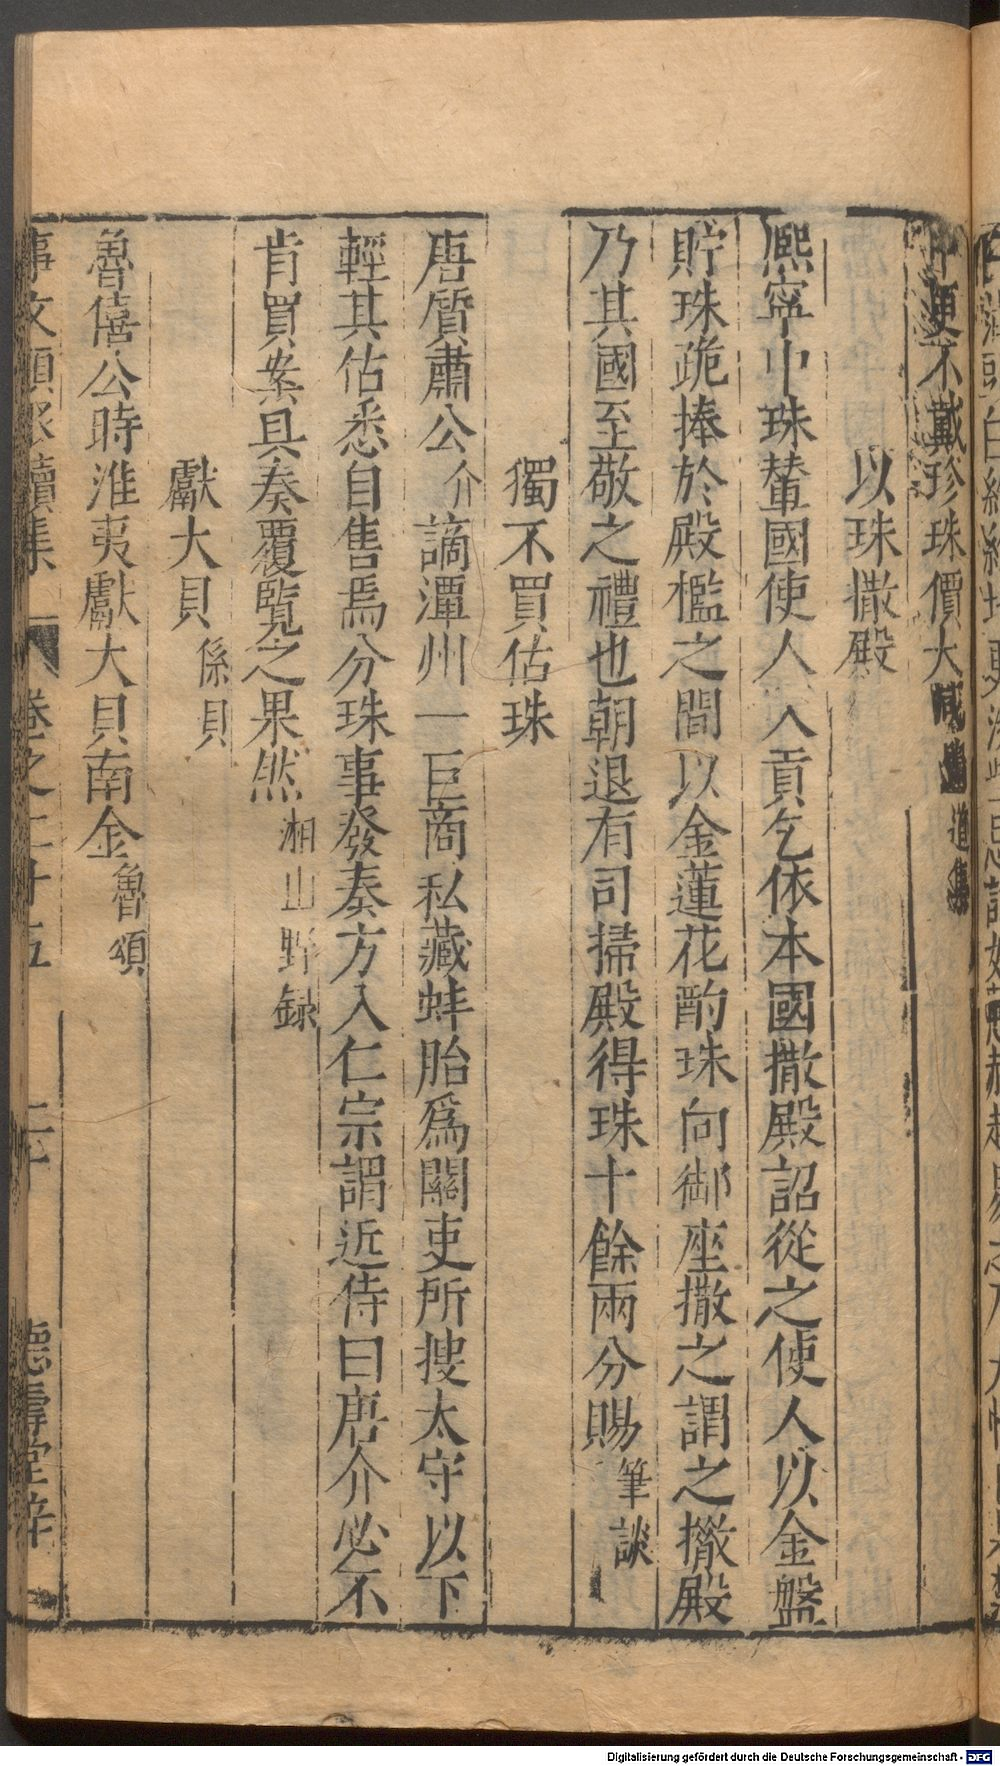 中便不戴珍珠價大減 道集
以珠撒殿
熙寧中珠輦國使人入貢乞依本國撒殿詔從之使人以金盤
貯珠跪捧於殿檻之間以金蓮花酌珠向御座撒之謂之撒殿
乃其國至敬之禮也朝退有司掃殿得珠十餘兩分賜筆談
獨不買估珠
唐質肅公介謫潭州一巨商私藏蚌胎爲關吏所搜太守以下
輕其估悉自售焉分珠事發奏方入仁宗謂近侍曰唐介必不
肯買案具奏覆覧之果然湘山野録
獻大貝係貝
魯僖公時淮夷獻大貝南金魯頌
事文類聚續集 卷之二十五 二十 德壽堂梓
Digitalisierung gefördert durch die Deutsche Forschungsgemeinschaft - DFG